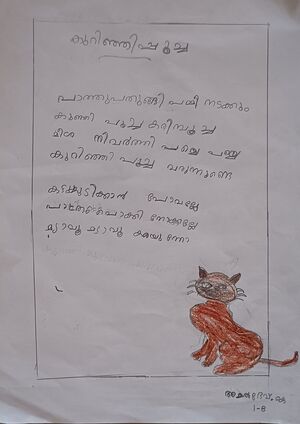 കുറിഞ്ഞിപ്പൂച്ച
പാത്തുപതുങ്ങി പമ്മി നടക്കും
കുഞ്ഞി പൂച്ച കരിമ്പൂച്ച
മീശ നിവർത്തി പച്ചെ പച്ചെ
കുറിഞ്ഞി പൂച്ച വരുന്നുണ്ടെ
കട്ടുകുടിക്കാൻ പോവല്ലേ
നോക്കല്ലേ
മ്യാവൂ മ്യാവൂ കരയുന്നോ
1-B